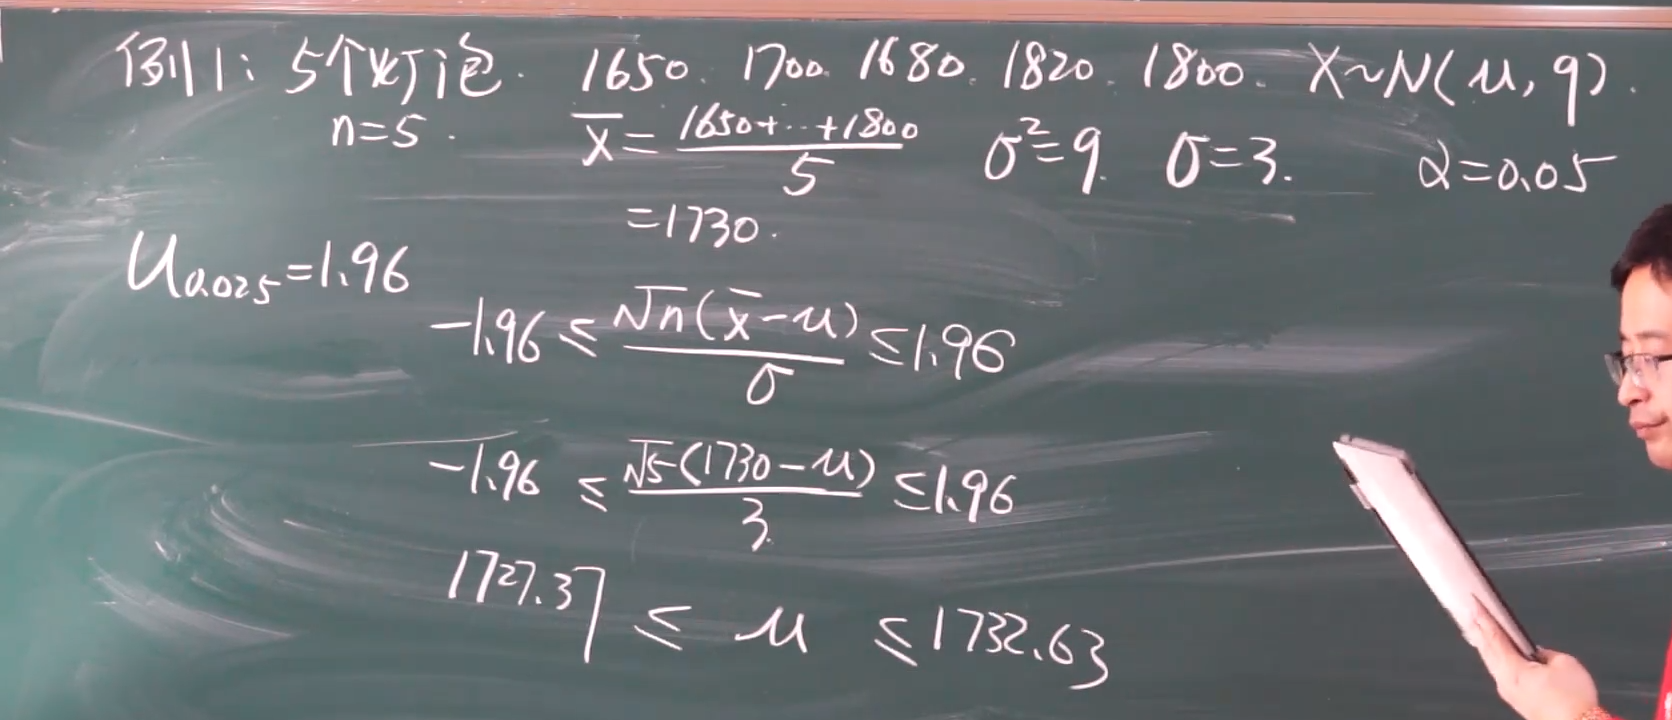 例1: 5个灯泡. 1650. 1700. 1680. 1820. 1800. X~N(μ, 9).
n=5. x̄ = (1650+…+1800)/5 σ²=9. σ=3. α=0.05
=1730.
U₀.₀₂₅=1.96
-1.96 ≤ √n(x̄-μ)/σ ≤ 1.96
-1.96 ≤ √5(1730-μ)/3 ≤ 1.96
1727.37 ≤ μ ≤ 1732.63